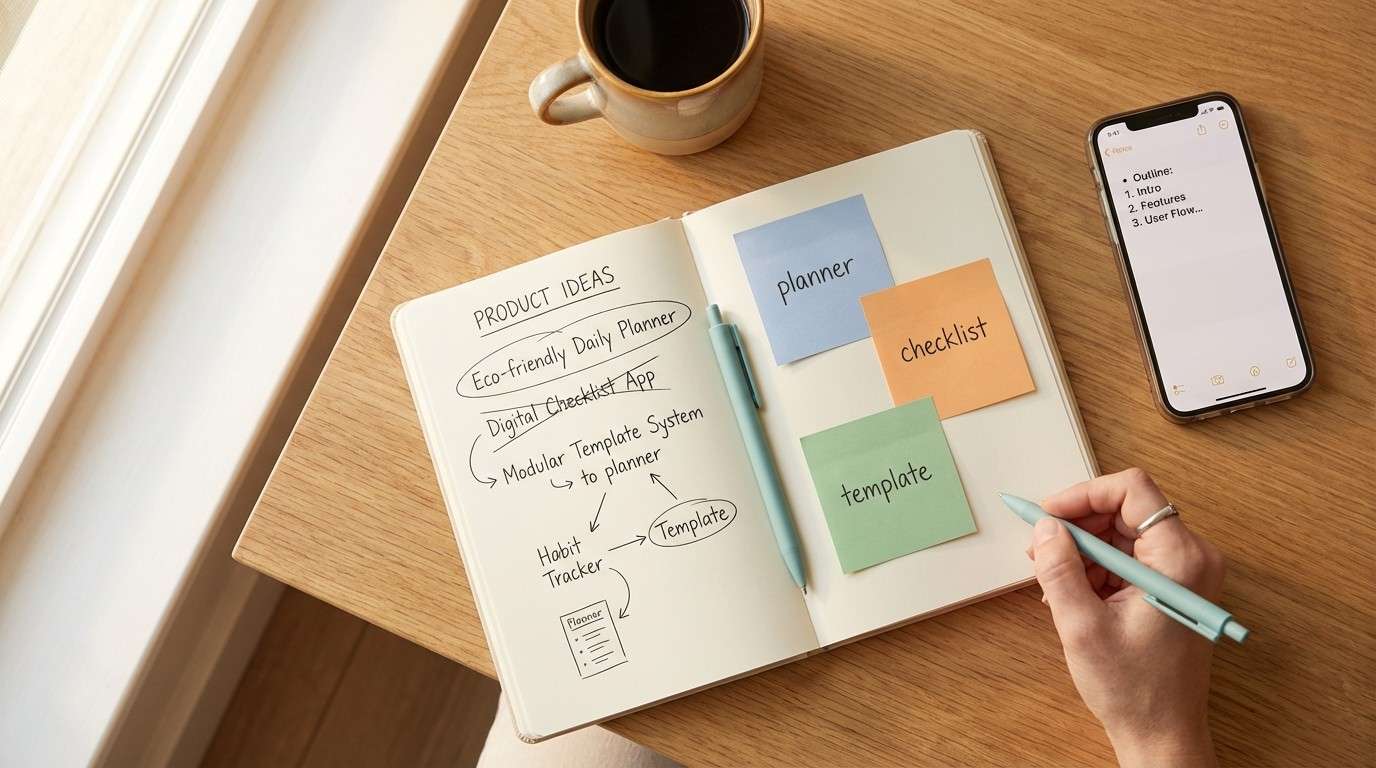 PRODUCT IDEAS
Eco-friendly Daily Planner
Digital Checklist App
Modular Template System
to planner
Habit
Tracker
Template
Planner
planner
checklist
template
9:41
Outline:
1. Intro
2. Features
3. User Flow...